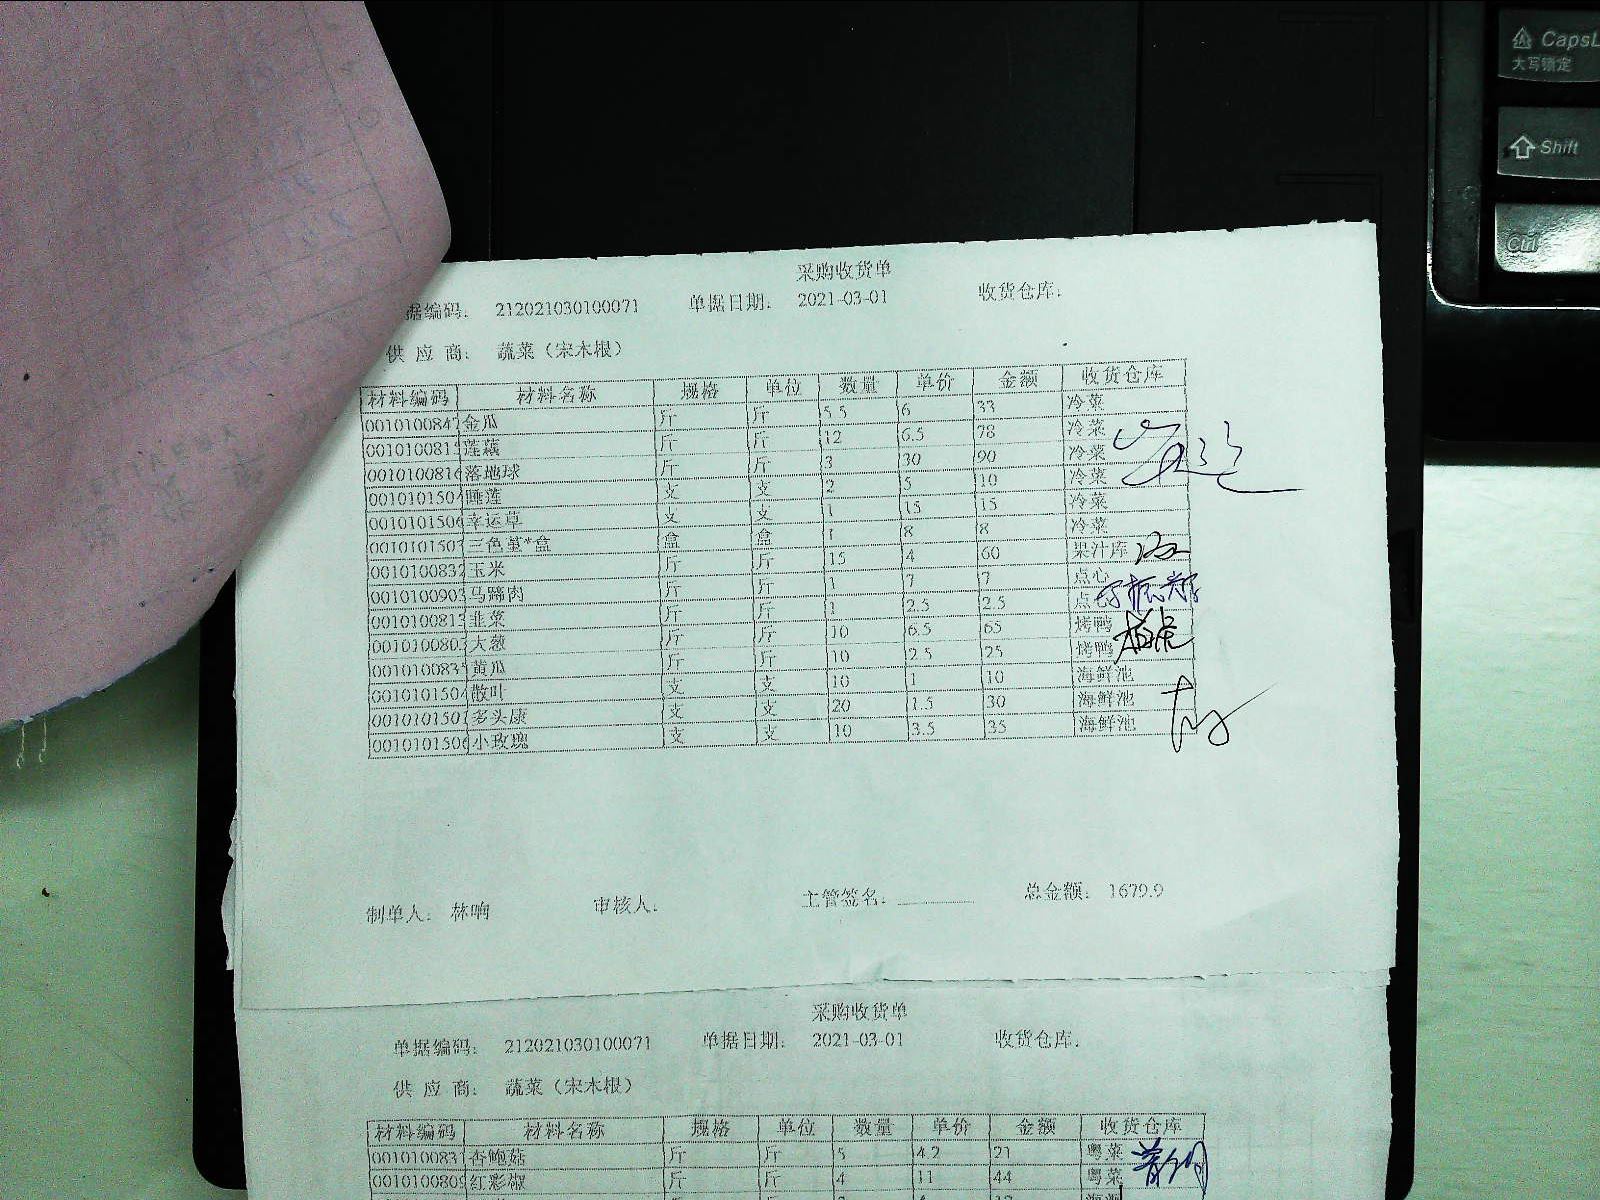 CapsL
大写锁定
Shift
Ctrl
采购收货单
据编码： 212021030100071 单据日期： 2021-03-01 收货仓库：
供 应 商： 蔬菜（宋木根）
材料编码 材料名称 规格 单位 数量 单价 金额 收货仓库
0010100847 金瓜 斤 斤 5.5 6 33 冷菜
001010081 莲藕 斤 斤 12 6.5 78 冷菜
0010100816 落地球 斤 斤 3 30 90 冷菜
001010150 睡莲 支 支 2 5 10 冷菜
0010101506 幸运草 支 支 1 15 15 冷菜
001010150 三色堇*盒 盒 盒 1 8 8 冷菜
001010083 玉米 斤 斤 15 4 60 果汁库
0010100903 马蹄肉 斤 斤 1 7 7 点心
001010081 韭菜 斤 斤 1 2.5 2.5 点
001010080 大葱 斤 斤 10 6.5 65 烤鸭
001010083 黄瓜 斤 斤 10 2.5 25 烤鸭
001010150 散叶 支 支 10 1 10 海鲜池
001010150 多头康 支 支 20 1.5 30 海鲜池
0010101506 小玫瑰 支 支 10 3.5 35 海鲜池
制单人： 林响 审核人： 主管签名： 总金额： 1679.9
采购收货单
单据编码： 212021030100071 单据日期： 2021-03-01 收货仓库：
供 应 商： 蔬菜（宋木根）
材料编码 材料名称 规格 单位 数量 单价 金额 收货仓库
001010083 杏鲍菇 斤 斤 5 4.2 21 粤菜
0010100809 红彩椒 斤 斤 4 11 44 粤菜